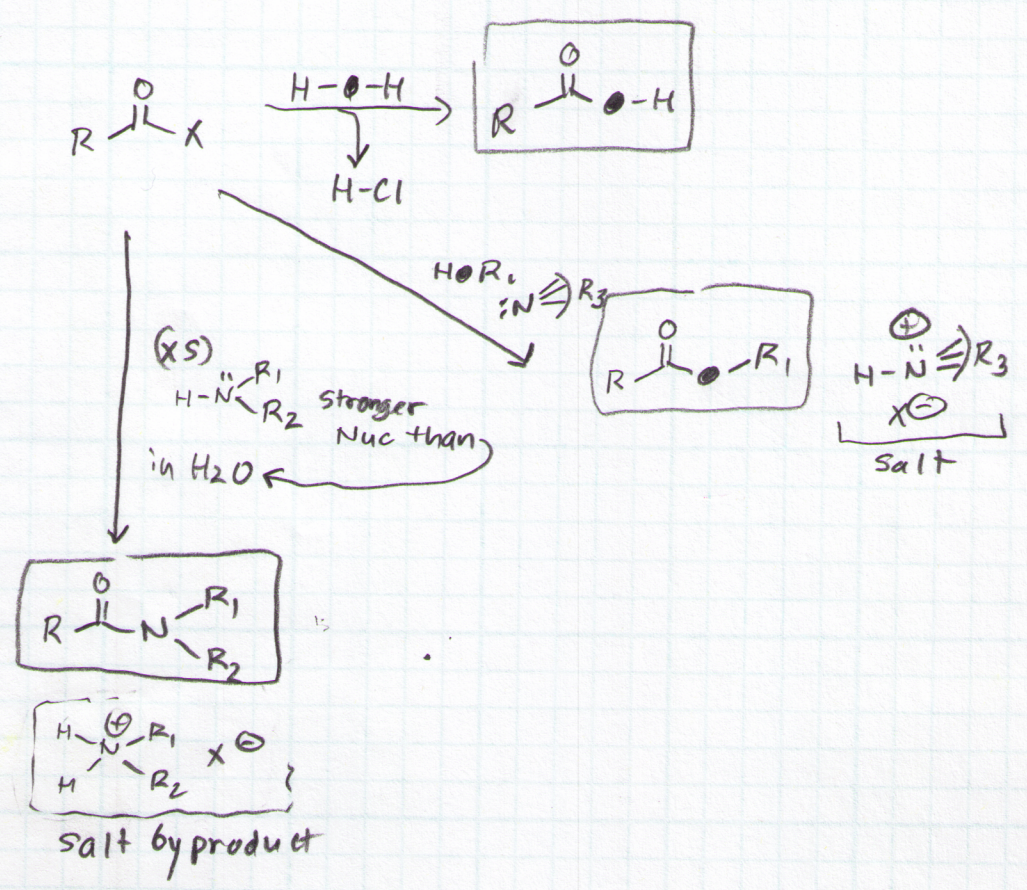 O
R X
H-●-H
H-Cl
O
R ●-H
H●R₁
:N≡)R₃
O
R ● R₁
⊕
H-N̈≡)R₃
X⊖
salt
(xs)
H-N̈ R₁
R₂
stronger
Nuc than
in H₂O
O
R N R₁
R₂
H ⊕ R₁
N
H R₂
X⊖
salt byproduct